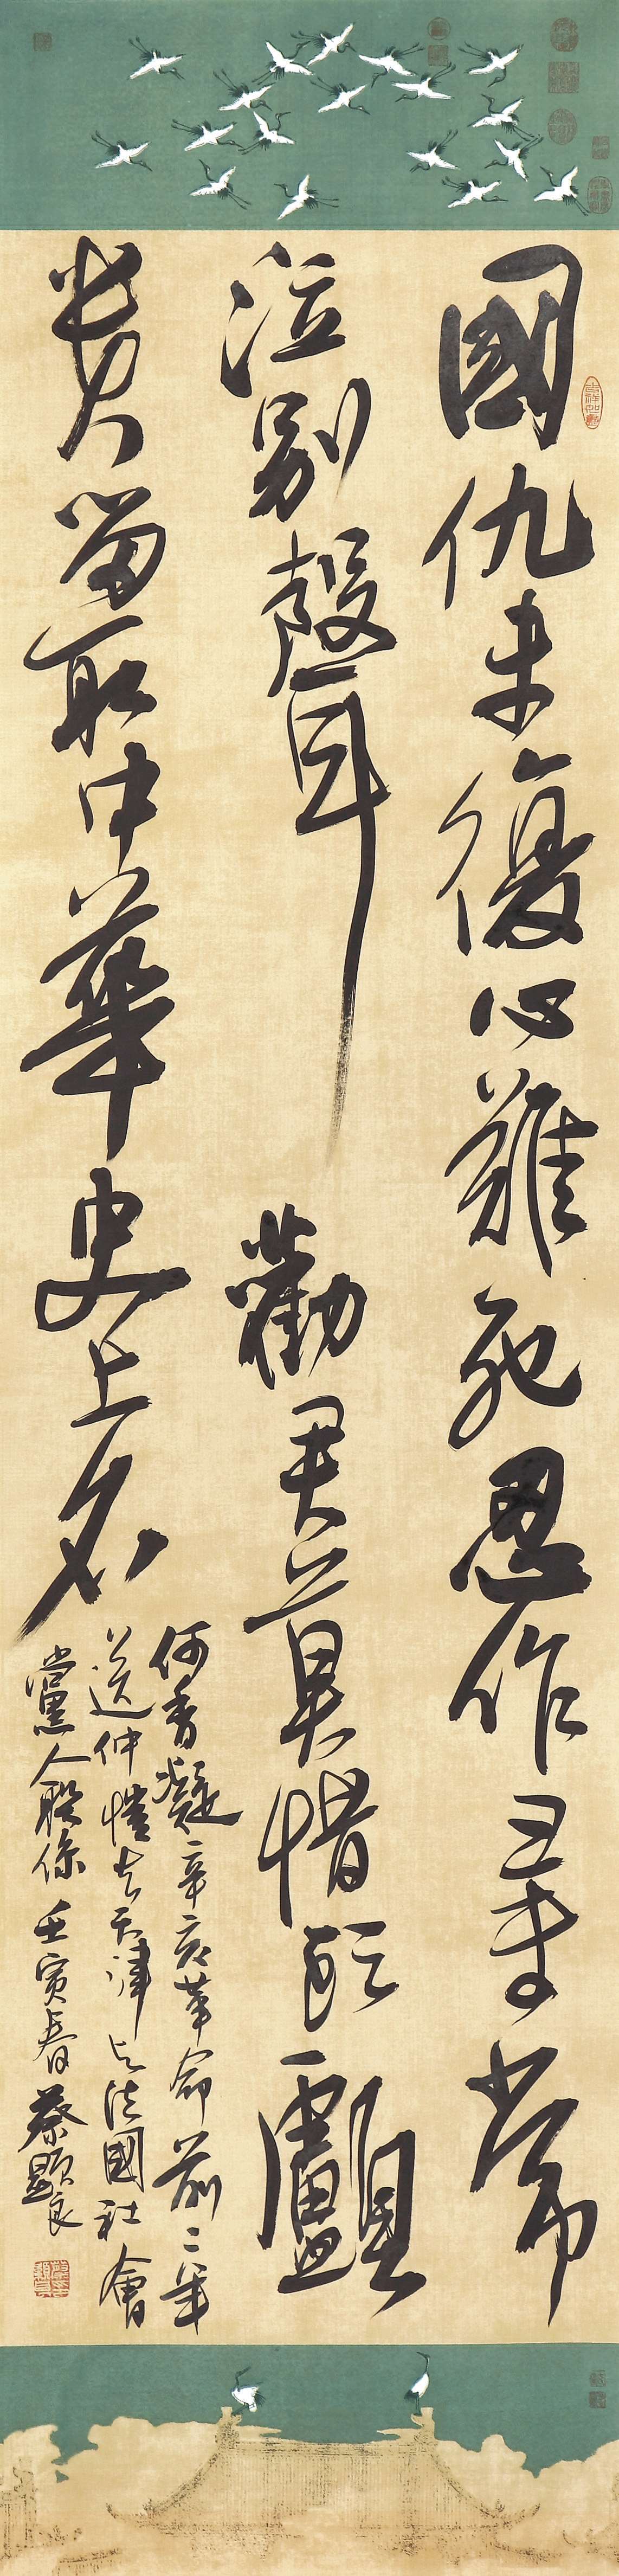 國仇未復心難死忍作尋常
泣別聲 勸君莫惜頭顱
貴留取中華史上名
何香凝辛亥革命前二年
送仲愷去天津与法國社會
黨人聯係 壬寅春 蔡顯良